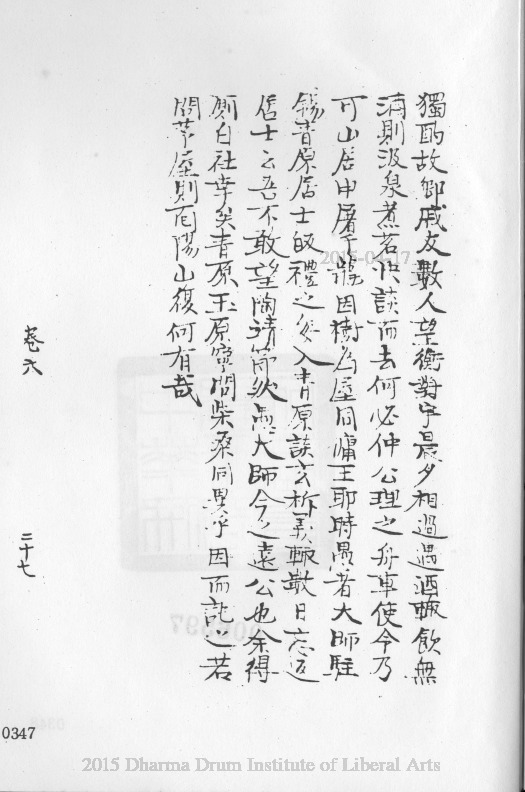 獨酌故鄉戚友數人望衡對宇晨夕相過遇酒輙飲無
酒則汲泉煮茗快談而去何必仲公理之舟車使令乃
可山居申屠子龍因樹為屋同傭王耶時愚者大師駐
錫青原居士皈禮之每入青原談玄析義輙數日忘返
居士云吾不敢望陶靖節然愚大師今之遠公也余得
厠白社幸矣青原玉原寧問柴桑同異乎因而記之若
問茅屋則首陽山復何有哉
卷六
二十七
0347
2015-04-17
2015 Dharma Drum Institute of Liberal Arts